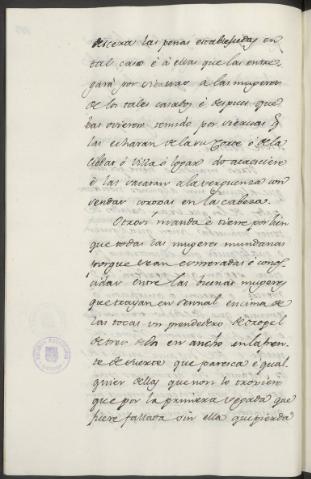 descera las penas establesidas en
tal caso é á ellas que las entre
gará por siervas a las mugeres
de los tales casados é despues que
las ovieren servido por siervas
las echaran de la su Corte é de la
cibdat ó villa ó logar do acaesciere
é las sacaran a la verguenza con
sendas corozas en la cabeza
Otrosi manda é tiene por bien
que todas las mugeres mundanas
porque sean conoscidas é cono
cidas entre las buenas mugeres
que trayan en señal encima de
las tocas un prendedero de oropel
de tres dedos en ancho en la fren
te de suerte que paresca é qual
quier dellas que non lo troxiere
que por la primera vegada que
fuere fallada sin ella que pierda